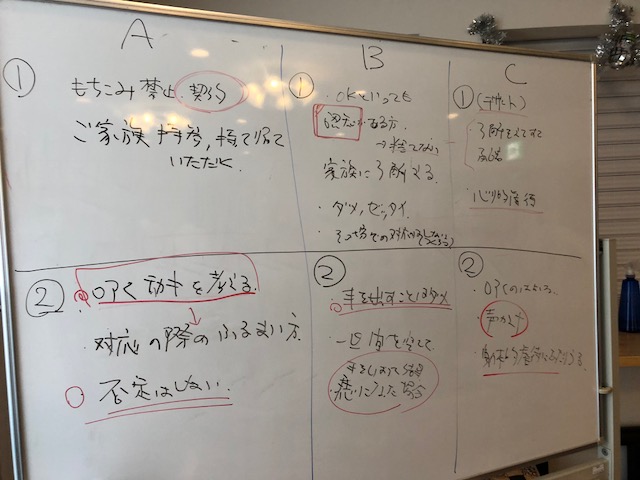 A
①
もちこみ禁止 契約
ご家族 持参、持って帰って
いただく
B
①
・OKといっても
認知がある方
→捨てない
家族に了解える
・ダメ、ゼッタイ
・その場での対応
C
①(デザート)
・了解をえてすてる
・心理的虐待
②
・叩く动キを考える
・対応の際のふるまい方
否定はしない
②
・手を出すことはダメ
・一旦 間を空けて
悪いになった場合
②
・叩くのは
・声かけ
・身体的虐待